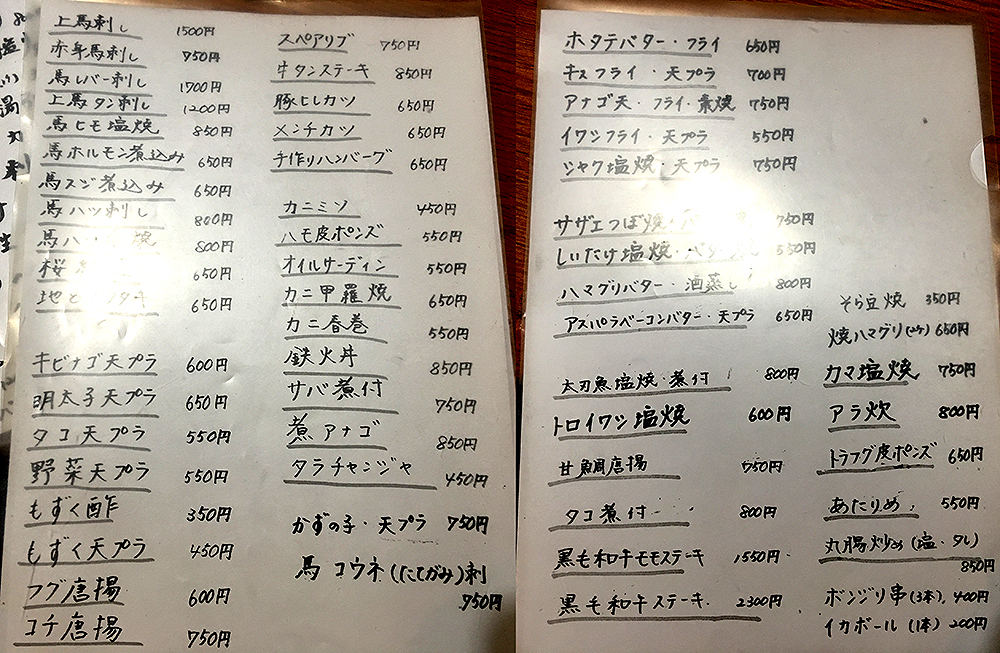 上馬刺し 1500円
赤身馬刺し 750円
馬レバー刺し 1700円
上馬タン刺し 1200円
馬ヒモ塩焼 850円
馬ホルモン煮込み 650円
馬スジ煮込み 650円
馬ハツ刺し 800円
馬ハ 焼 800円
桜 650円
地 650円
キビナゴ天プラ 600円
明太子天プラ 650円
タコ天プラ 550円
野菜天プラ 550円
もずく酢 350円
もずく天プラ 450円
フグ唐揚 600円
コチ唐揚 750円
スペアリブ 750円
牛タンステーキ 850円
豚ヒレカツ 650円
メンチカツ 650円
手作りハンバーグ 650円
カニミソ 450円
ハモ皮ポンズ 550円
オイルサーディン 550円
カニ甲羅焼 650円
カニ春巻 550円
鉄火丼 850円
サバ煮付 750円
煮アナゴ 850円
タラチャンジャ 450円
かずの子・天プラ 750円
馬コウネ(たてがみ)刺
750円
ホタテバター・フライ 650円
キスフライ・天プラ 700円
アナゴ天・フライ・素焼 750円
イワシフライ・天プラ 550円
シャク塩焼・天プラ 750円
サザエつぼ焼・ 750円
しいたけ塩焼・バター 550円
ハマグリバター・酒蒸し 800円
アスパラベーコンバター・天プラ 650円
太刀魚塩焼・煮付 800円
トロイワシ塩焼 600円
甘鯛唐揚 750円
タコ煮付 800円
黒毛和牛モモステーキ 1550円
黒毛和牛ステーキ 2300円
そら豆焼 350円
焼ハマグリ(2ケ) 650円
カマ塩焼 750円
アラ炊 800円
トラフグ皮ポンズ 650円
あたりめ 550円
丸腸炒め(塩・タレ)
850円
ボンジリ串(3本) 400円
イカボール(1本) 200円